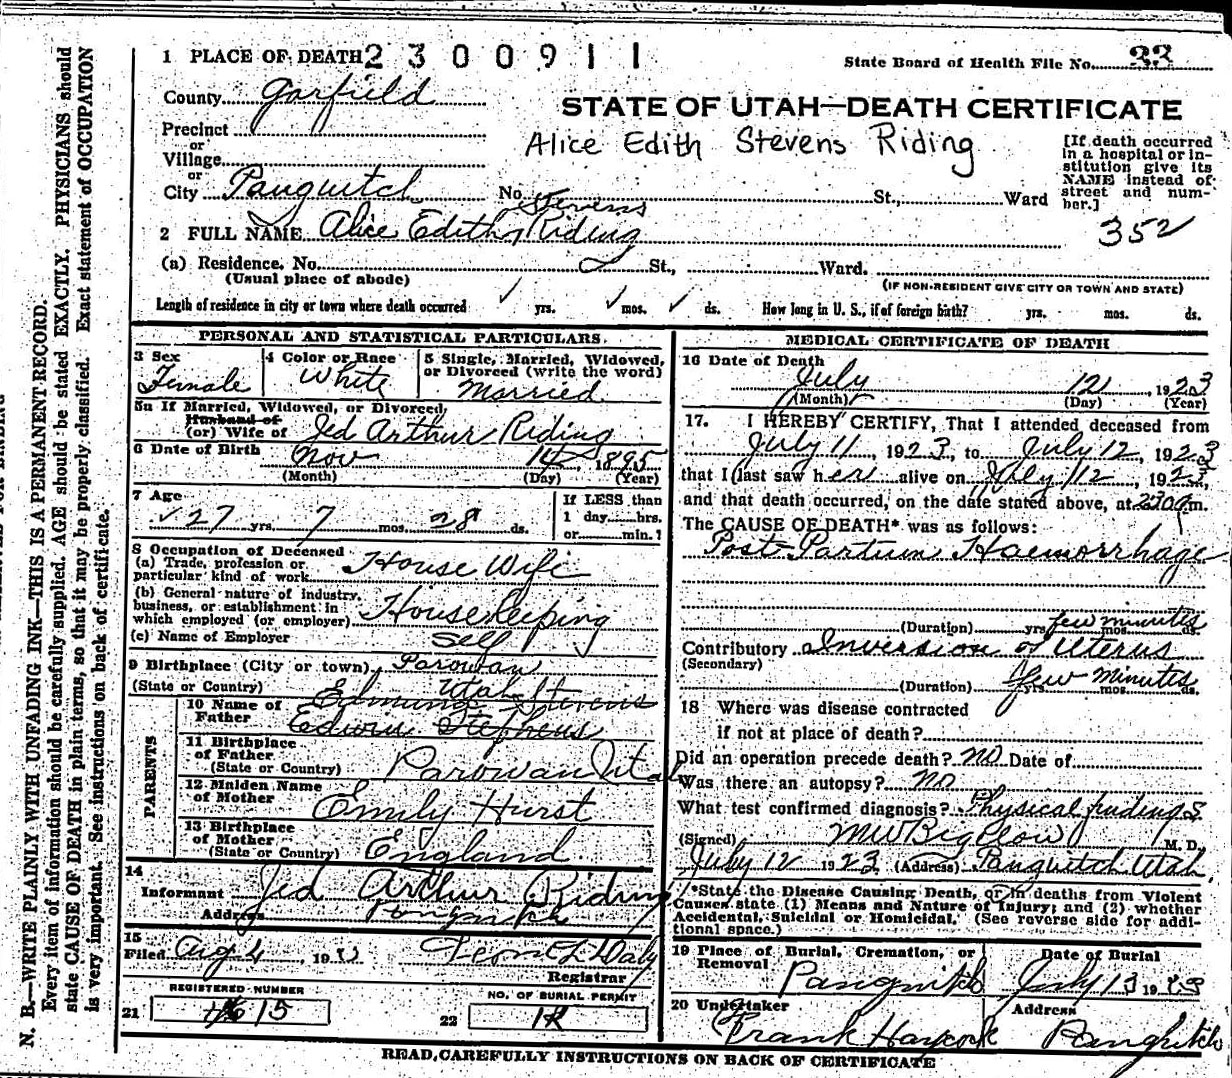 1 PLACE OF DEATH 2300911
State Board of Health File No. 22
County Garfield
STATE OF UTAH—DEATH CERTIFICATE
Precinct
or
Village
or
City Panguitch No. St., Ward
Alice Edith Stevens Riding
[If death occurred
in a hospital or in-
stitution give its
NAME instead of
street and num-
ber.]
352
Stevens
2 FULL NAME Alice Edith Riding
(a) Residence. No. St., Ward.
(Usual place of abode)
(IF NON-RESIDENT GIVE CITY OR TOWN AND STATE)
Length of residence in city or town where death occurred yrs. mos. ds. How long in U. S., if of foreign birth? yrs. mos. ds.
PERSONAL AND STATISTICAL PARTICULARS.
3 Sex
Female
4 Color or Race
White
5 Single, Married, Widowed,
or Divorced (write the word)
Married
5a If Married, Widowed, or Divorced,
Husband of
(or) Wife of Jed Arthur Riding
6 Date of Birth Nov 14, 1895
(Month) (Day) (Year)
7 Age
27 yrs. 7 mos. 28 ds.
If LESS than
1 day......hrs.
or......min.?
8 Occupation of Deceased
(a) Trade, profession or
particular kind of work House Wife
(b) General nature of industry,
business, or establishment in
which employed (or employer) Housekeeping
(c) Name of Employer Self
9 Birthplace (City or town) Parowan
(State or Country) Utah
PARENTS
10 Name of
Father
Edmund Stevens
Edwin Stephens
11 Birthplace
of Father
(State or Country) Parowan Utah
12 Maiden Name
of Mother Emily Hurst
13 Birthplace
of Mother
(State or Country) England
14
Informant Jed Arthur Riding
Address Panguitch
15
Filed Aug 4, 19
Daly
Registrar
REGISTERED NUMBER
21 15
NO. OF BURIAL PERMIT
22
MEDICAL CERTIFICATE OF DEATH
16 Date of Death
July 12, 1923
(Month) (Day) (Year)
17. I HEREBY CERTIFY, That I attended deceased from
July 11, 1923, to July 12, 1923
that I last saw her alive on July 12, 1923,
and that death occurred, on the date stated above, at 230 m.
The CAUSE OF DEATH* was as follows:
Post Partum Haemorrhage
(Duration) yrs. few minutes mos. ds.
Contributory Inversion of Uterus
(Secondary)
(Duration) few minutes yrs. mos. ds.
18 Where was disease contracted
if not at place of death?
Did an operation precede death? no Date of
Was there an autopsy? no
What test confirmed diagnosis? Physical findings
(Signed) M W Bigelow M. D.
July 12 1923 (Address) Panguitch Utah.
*State the Disease Causing Death, or in deaths from Violent
Causes state (1) Means and Nature of Injury; and (2) whether
Accidental, Suicidal or Homicidal. (See reverse side for addi-
tional space.)
19 Place of Burial, Cremation, or
Removal
Panguitch
Date of Burial
July 13 1923
20 Undertaker
Frank Haycock
Address
Panguitch
READ CAREFULLY INSTRUCTIONS ON BACK OF CERTIFICATE
N. B.—WRITE PLAINLY WITH UNFADING INK—THIS IS A PERMANENT RECORD.
Every item of information should be carefully supplied. AGE should be stated EXACTLY. PHYSICIANS should
state CAUSE OF DEATH in plain terms, so that it may be properly classified. Exact statement of OCCUPATION
is very important. See instructions on back of certificate.